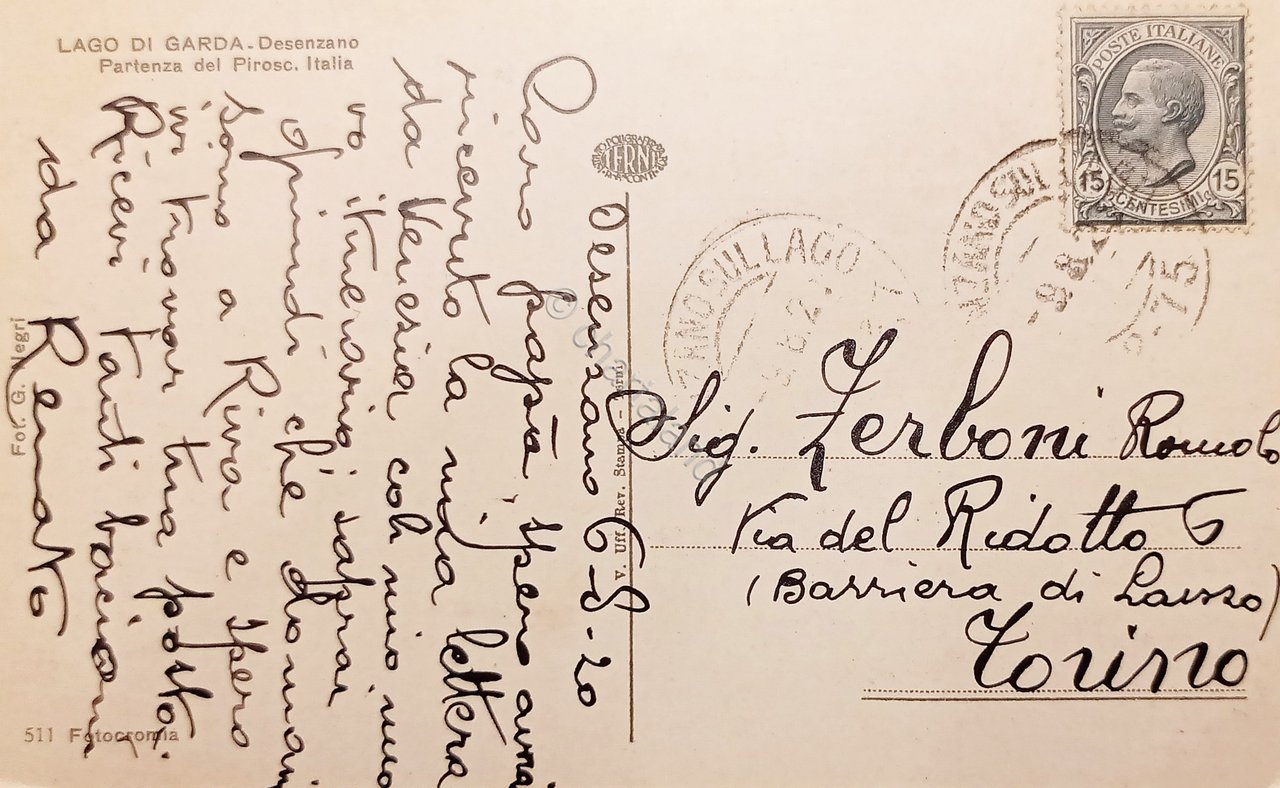 LAGO DI GARDA - Desenzano
Partenza del Pirosc. Italia
POSTE ITALIANE
15 CENTESIMI 15
TERNI
ZANO SUL LAGO
Desenzano 6-8-20
Caro papà, spero avrai
ricevuto la mia lettera
da Venezia col mio nuo
vo itinerario; saprai
quindi che domani
sono a Riva e spero
vi trovar tua posta.
Ricevi tanti bacioni
da Renato
Sig. Zerboni Romolo
Via del Ridotto 6
(Barriera di Lanzo)
Torino
V. Uff. Rev. Stampa - Terni
Fot. G. Negri
511 Fotocromia
© chartaland